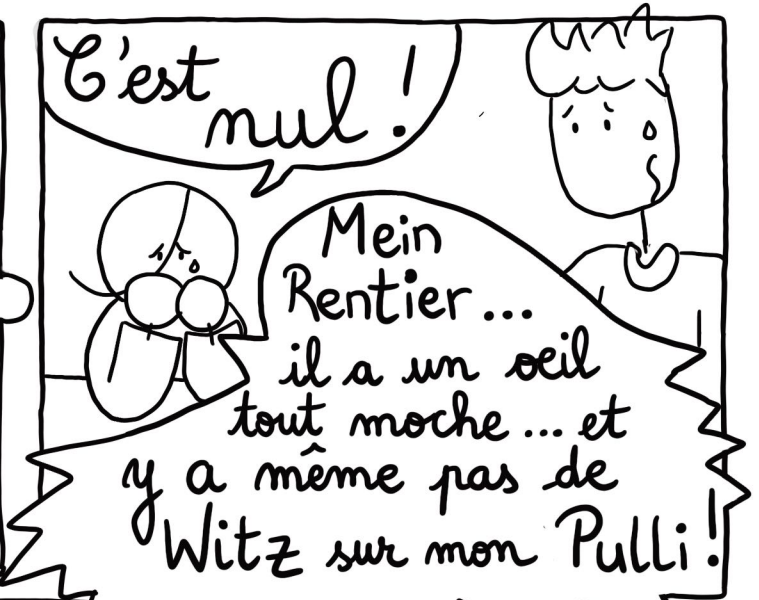 C'est
nul !
Mein
Rentier...
il a un oeil
tout moche... et
y a même pas de
Witz sur mon Pulli !